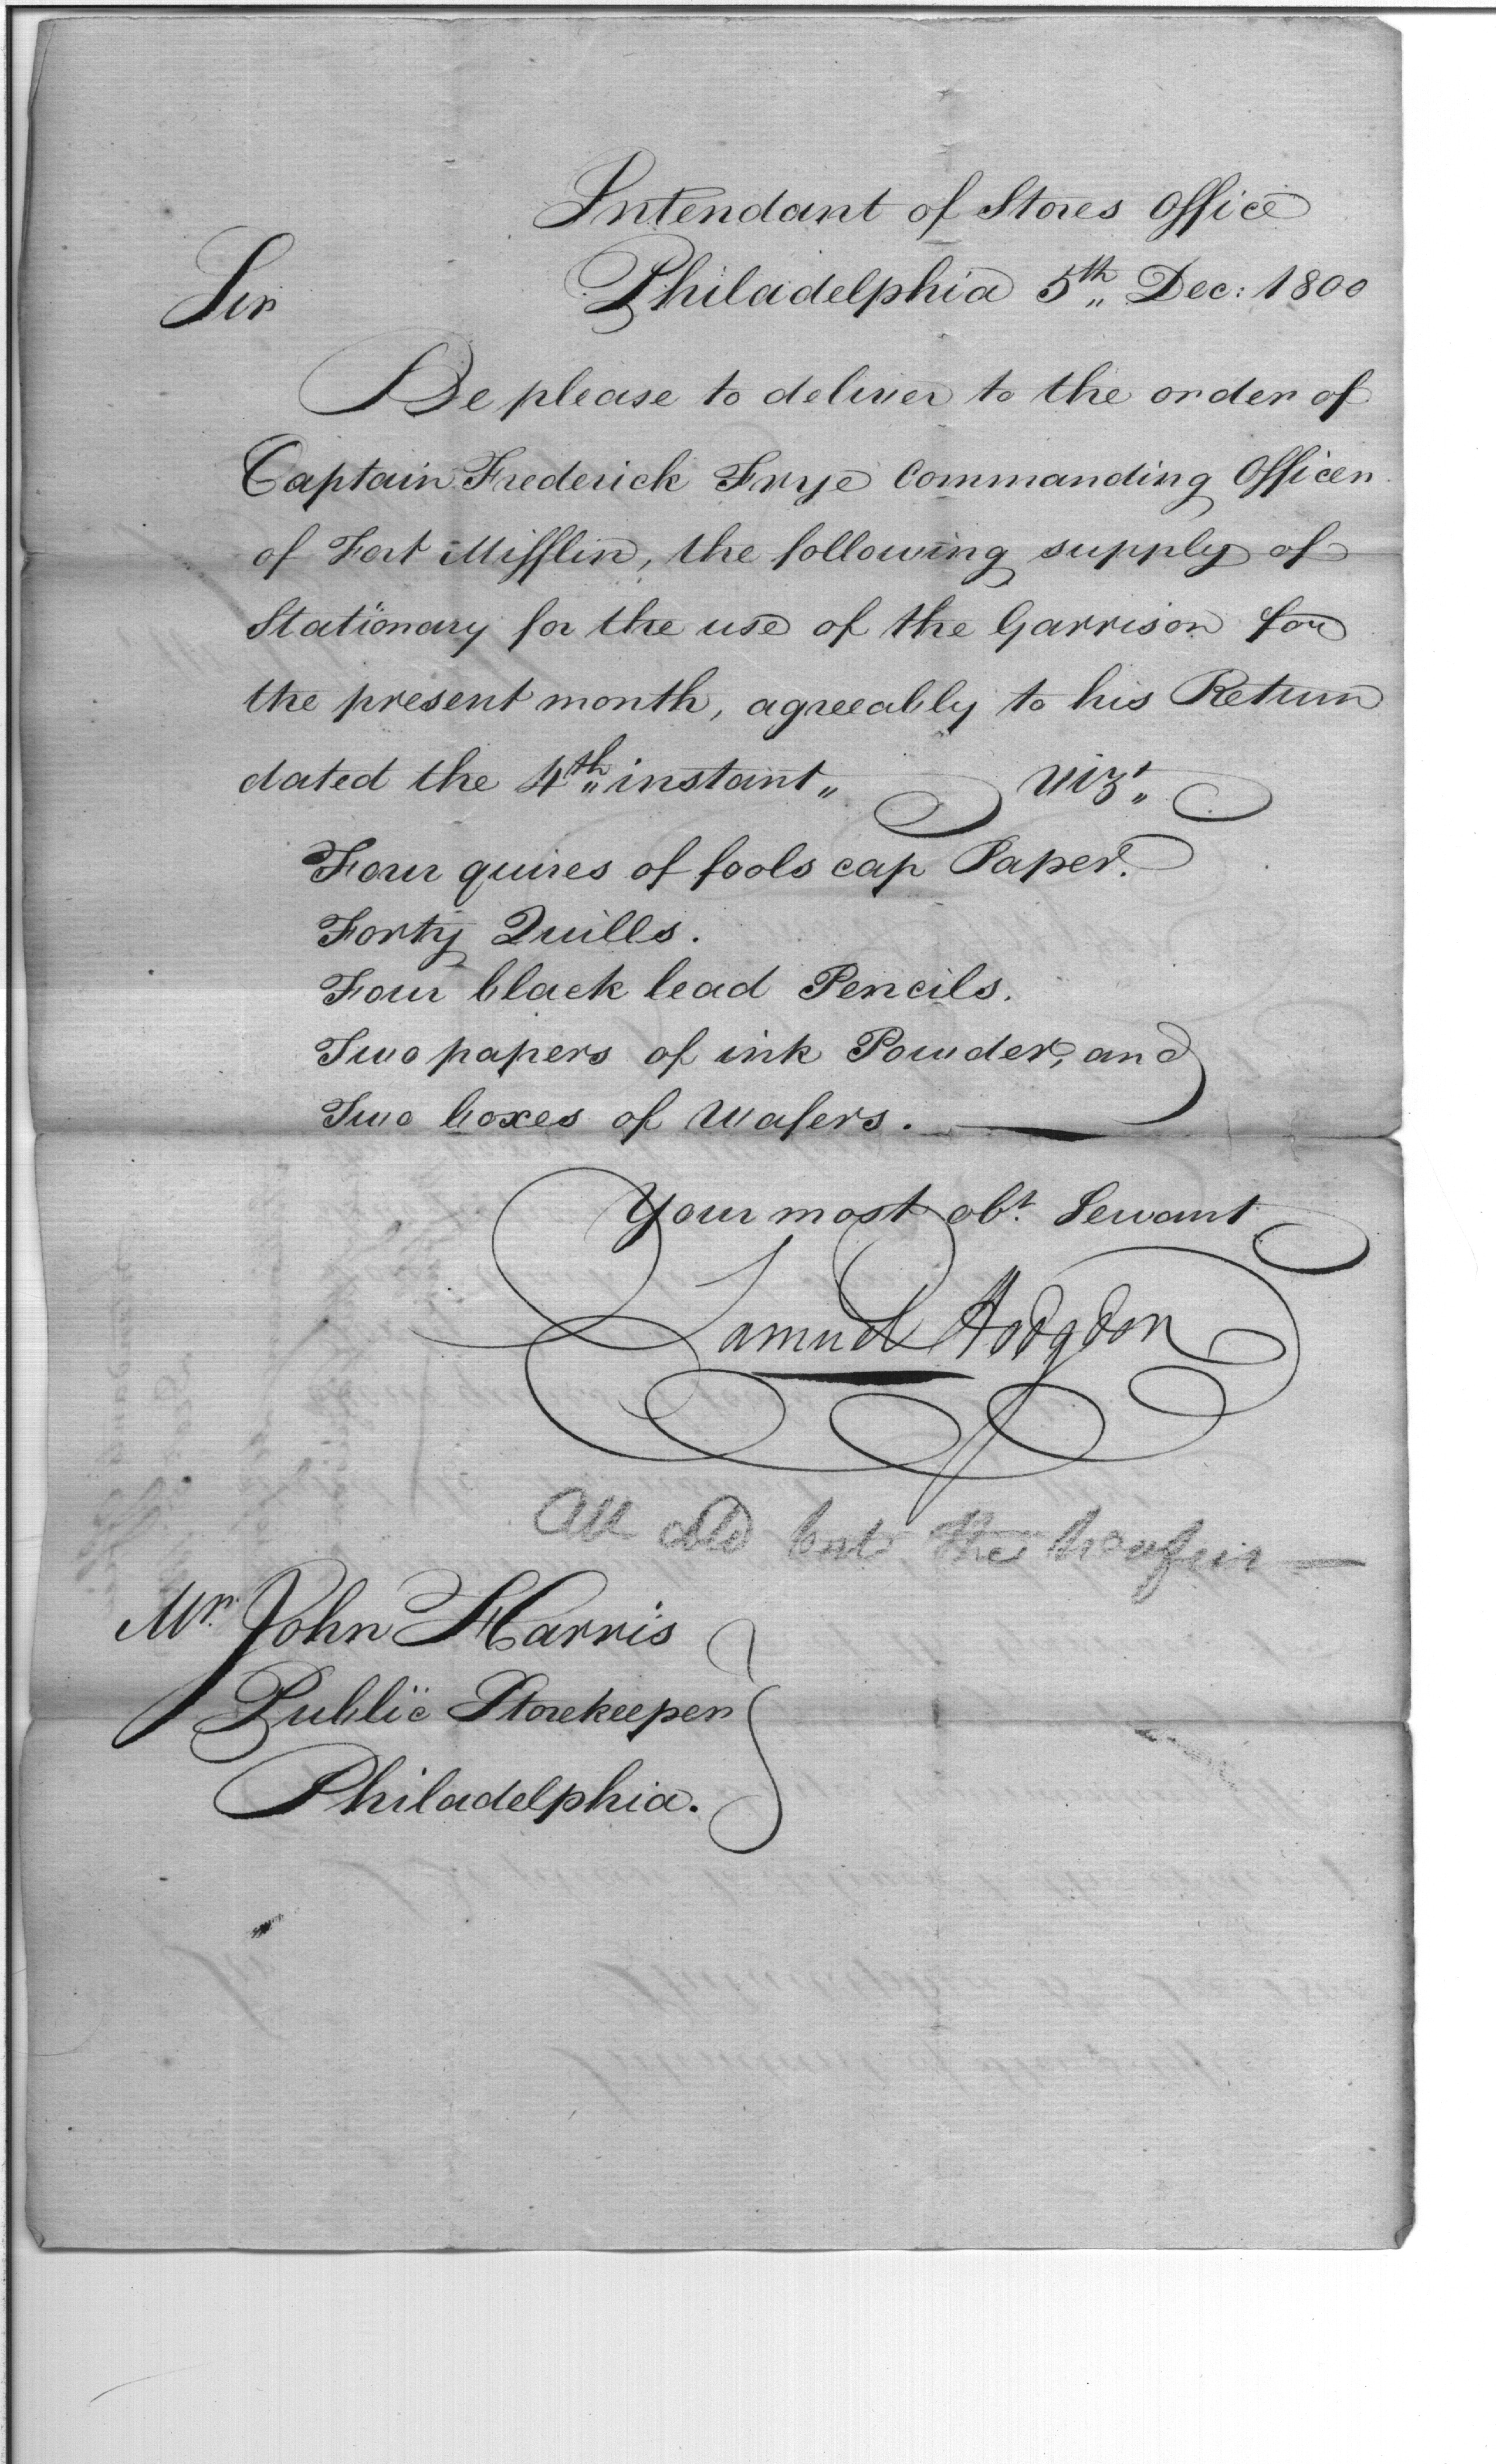 Intendant of Stores Office
Sir
Philadelphia 5th,, Dec: 1800
Be please to deliver to the order of
Captain Frederick Frye Commanding Officer
of Fort Mifflin, the following supply of
Stationary for the use of the Garrison for
the present month, agreeably to his Return
dated the 4th,, instant,, Viz,,
Four quires of fools cap Paper.
Forty Quills.
Four black lead Pencils.
Two papers of ink Powder, and
Two boxes of Wafers.
Your most obt. Servant
Samuel Hodgdon
All but the
Mr. John Harris
Public Storekeeper
Philadelphia.